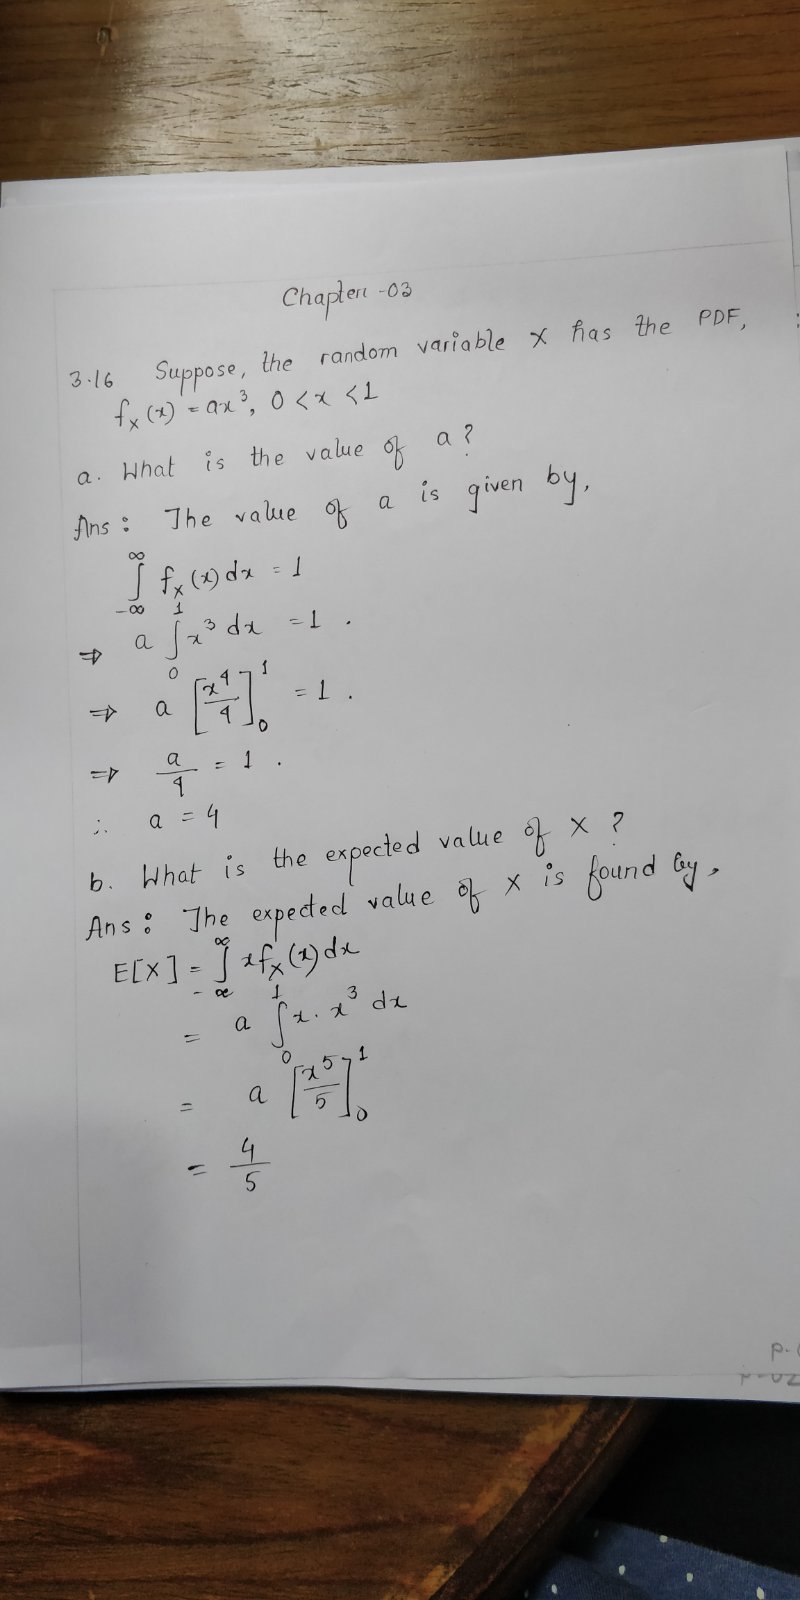 Chapter -03
3.16 Suppose, the random variable X has the PDF,
fx(x) = ax³, 0 < x < 1
a. What is the value of a?
Ans: The value of a is given by,
∫_{-∞}^{∞} fx(x) dx = 1
⇒ a ∫_0^1 x³ dx = 1.
⇒ a [x⁴/4]_0^1 = 1.
⇒ a/4 = 1.
∴ a = 4
b. What is the expected value of X?
Ans: The expected value of X is found by,
E[X] = ∫_{-∞}^{∞} xfx(x) dx
= a ∫_0^1 x. x³ dx
= a [x⁵/5]_0^1
= 4/5